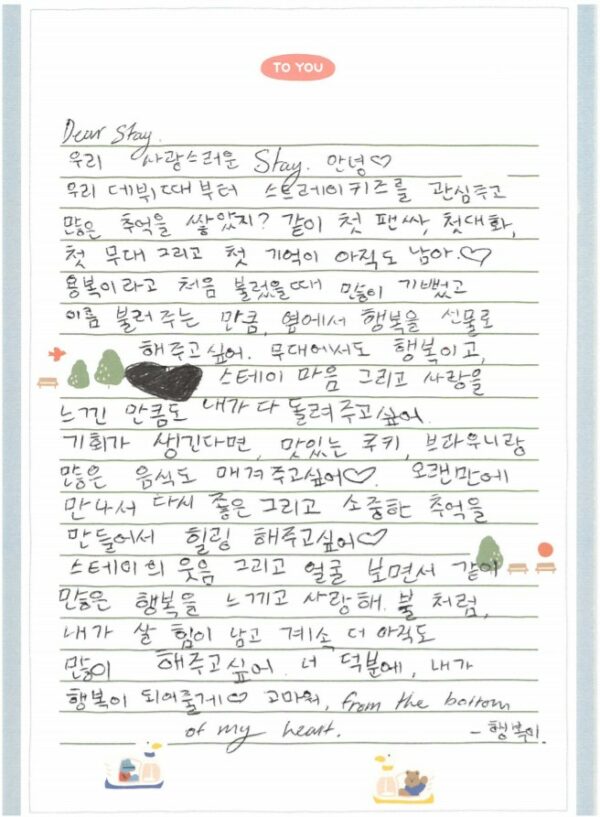 TO YOU
Dear Stay.
우리 사랑스러운 Stay. 안녕♡
우리 데뷔때부터 스트레이키즈를 관심주고
많은 추억을 쌓았지? 같이 첫 팬싸, 첫대화,
첫 무대 그리고 첫 기억이 아직도 남아.♡
용복이라고 처음 불렀을때 많이 기뻤고
이름 불러 주는 만큼, 옆에서 행복을 선물로
해주고싶어. 무대에서도 행복이고,
스테이 마음 그리고 사랑을
느낀 만큼도 내가 다 돌려주고싶어.
기회가 생긴다면, 맛있는 쿠키, 브라우니랑
많은 음식도 매겨주고싶어♡. 오랜만에
만나서 다시 좋은 그리고 소중한 추억을
만들어서 힐링 해주고싶어♡
스테이의 웃음 그리고 얼굴 보면서 같이
많은 행복을 느끼고 사랑해. 불 처럼,
내가 살 힘이 남고 계속 더 아직도
많이 해주고싶어. 너 덕분에, 내가
행복이 되어줄게♡ 고마워, from the bottom
of my heart.
- 행복이.